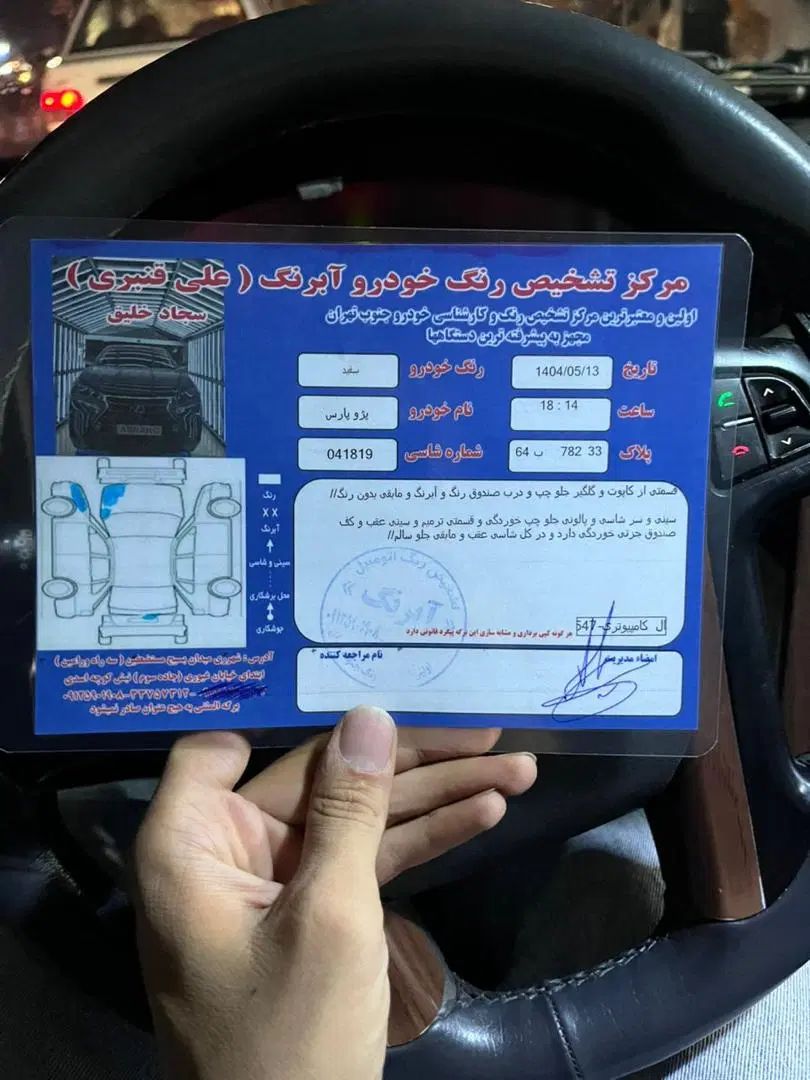 مرکز تشخیص رنگ خودرو آبرنگ ( علی قنبری )
سجاد خلیق
اولین و معتبرترین مرکز تشخیص رنگ و کارشناسی خودرو جنوب تهران
مجهز به پیشرفته ترین دستگاهها
تاریخ 1404/05/13 رنگ خودرو سفید
ساعت 18 : 14 نام خودرو پژو پارس
پلاک 64 ب 782 33 شماره شاسی 041819
قسمتی از کاپوت و گلگیر جلو چپ و درب صندوق رنگ و آبرنگ و مابقی بدون رنگ//
سینی و سر شاسی و پالونی جلو چپ خوردگی و قسمتی ترمیم و سینی عقب و کف
صندوق جزئی خوردگی دارد و در کل شاسی عقب و مابقی جلو سالم//
رنگ
X X
آبرنگ
سینی و شاسی
محل برشکاری
جوشکاری
تشخیص رنگ اتومبیل
آبرنگ
ال کامپیوتری-547
هر گونه کپی برداری و مشابه سازی این برگه پیگرد قانونی دارد
امضاء مدیریت
نام مراجعه کننده
آدرس : شهرری میدان بسیج مستضعفین ( سه راه ورامین )
ابتدای خیابان غیوری (جاده سوم ) نبش کوچه اسدی
۰۹۱۲۵۹۰۱۹۰۸-۳۳۷۵۷۳۱۲-
برگ المثنی به هیچ عنوان صادر نمیشود